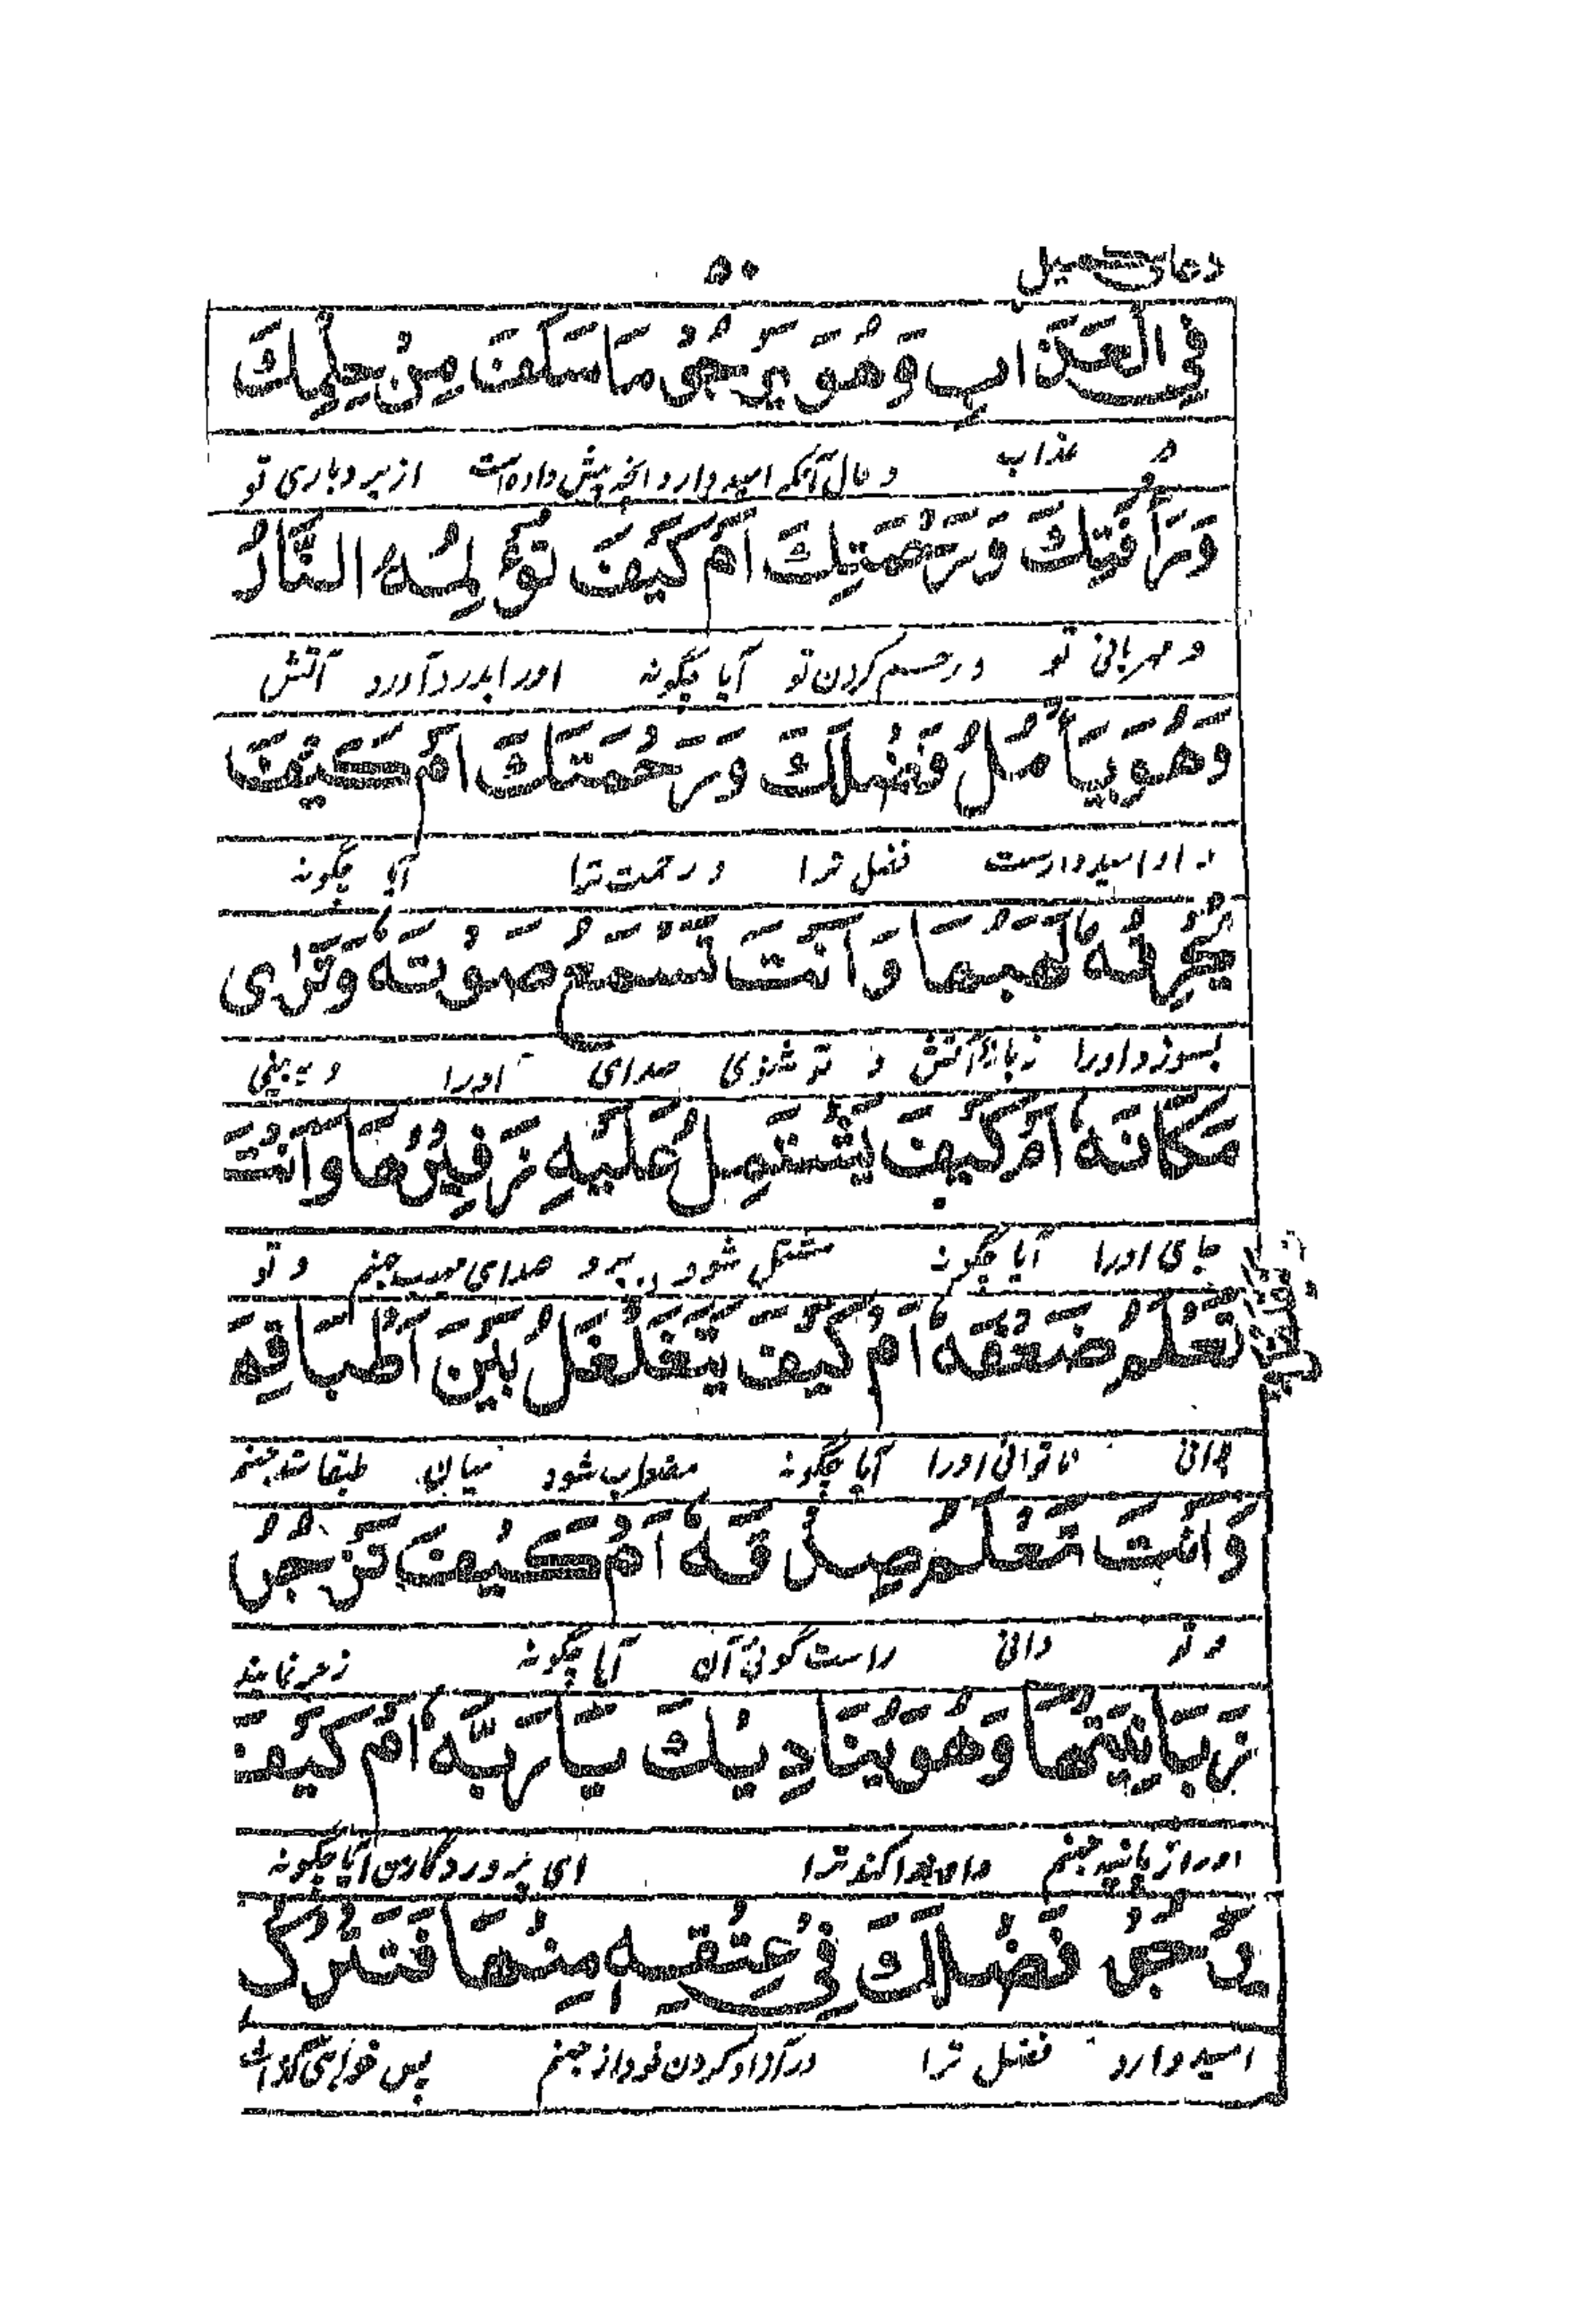 دعای کمیل ۵۰
فِی الْعَذَابِ وَهُوَ یَرْجُوْ مَا سَلَفَ مِنْ حِلْمِكَ
در عذاب و حال آنکه امید دارد آنچه پیش داده است از بردباری تو
وَرَأْفَتِكَ وَرَحْمَتِكَ اَمْ كَیْفَ تُؤْلِمُهُ النَّارُ
و مهربانی تو و رحم کردن تو آیا چگونه اورا بدرد آورد آتش
وَهُوَ یَأْمُلُ فَضْلَكَ وَرَحْمَتَكَ اَمْ كَیْفَ
و او امیدوارست فضل ترا و رحمت ترا آیا چگونه
یُحْرِقُهٗ لَهَبُهَا وَاَنْتَ تَسْمَعُ صَوْتَهٗ وَتَرٰی
بسوزد اورا زبانه آتش و تو شنوی صدای اورا و ببینی
مَكَانَهٗ اَمْ كَیْفَ یَشْتَمِلُ عَلَیْهِ زَفِیْرُهَا وَاَنْتَ
جای اورا آیا چگونه مشتمل شود برو صدای جهنم و تو
تَعْلَمُ ضَعْفَهٗ اَمْ كَیْفَ یَتَغَلْغَلُ بَیْنَ اَطْبَاقِهَ
دانی ناتوانی اورا آیا چگونه مضطرب شود میان طبقات جهنم
وَاَنْتَ تَعْلَمُ صِدْقَهٗ اَمْ كَیْفَ تَزْجُرُ
و تو دانی راست گوئی آن آیا چگونه زجر نمایند
زَبَانِیَتُهَا وَهُوَ یُنَادِیْكَ یَا رَبَّهٗ اَمْ كَیْفَ
اورا زبانیه جهنم و او ندا کند ترا ای پروردگار من آیا چگونه
یَرْجُوْ فَضْلَكَ فِیْ عِتْقِهٖ مِنْهَا فَتَتْرُكُ
امید دارد فضل ترا در آزاد کردن خود از جهنم پس خواهی گذاشت